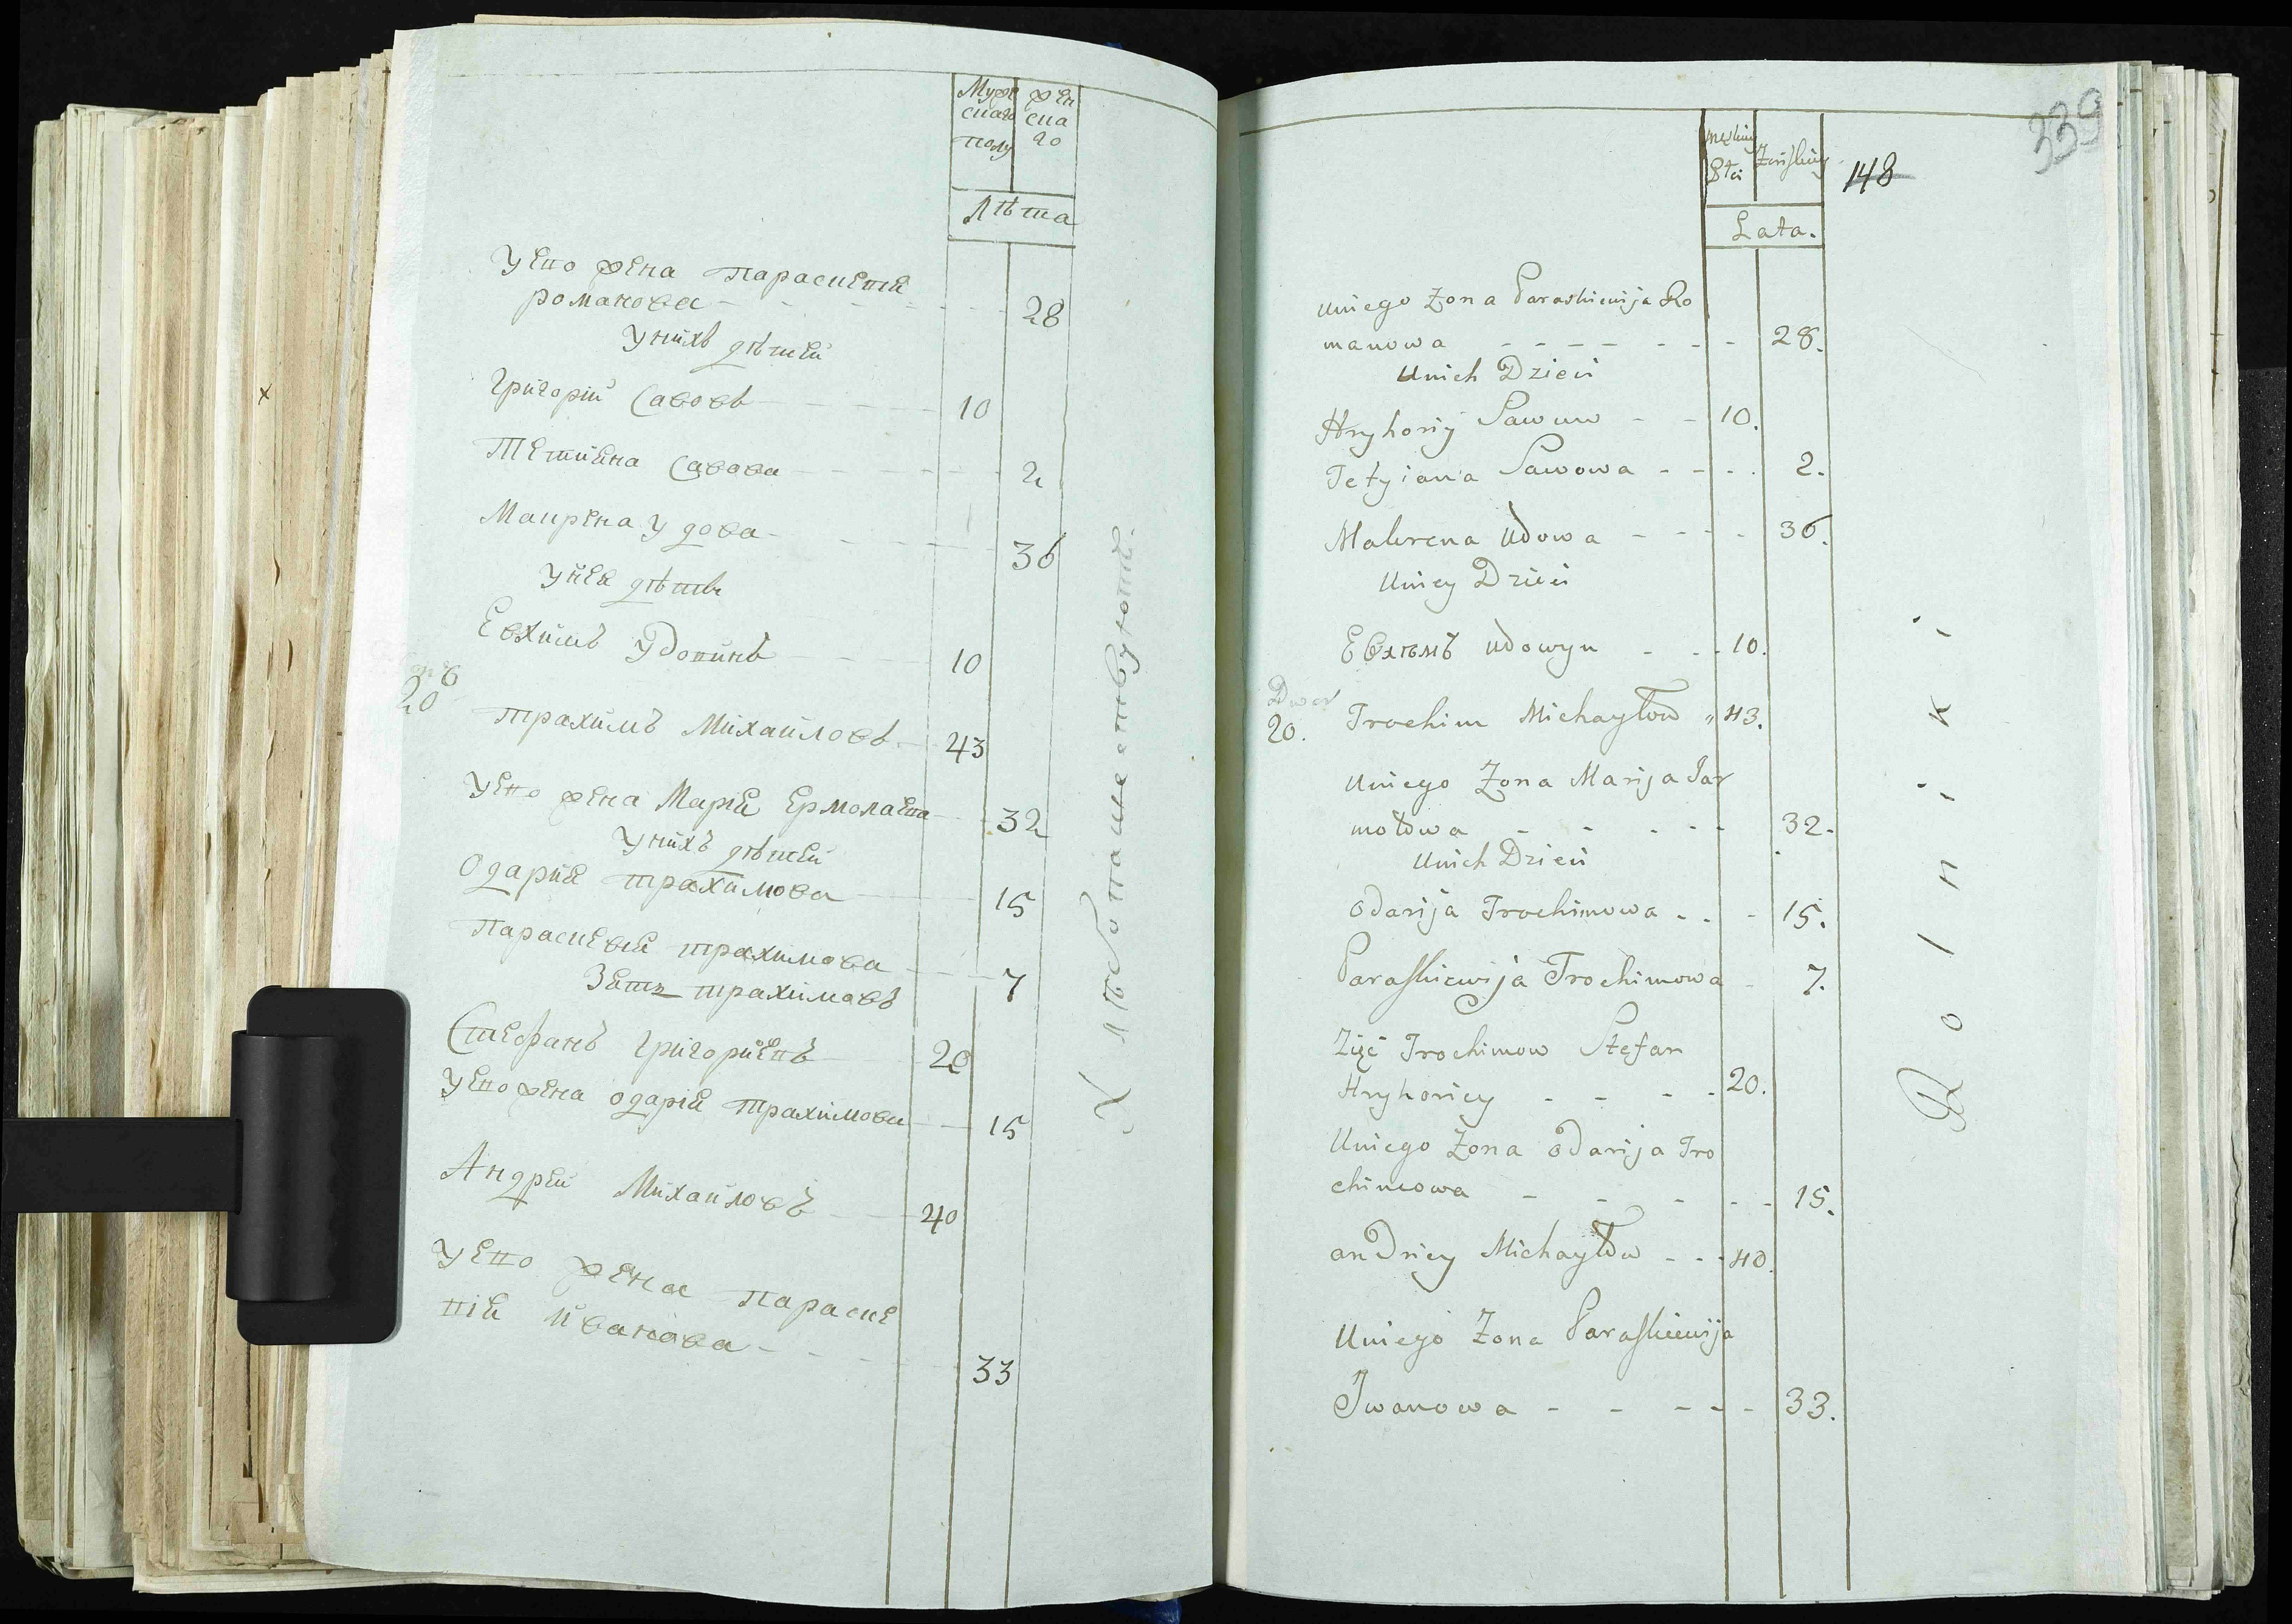 Муже жен
скаго ска
полу го
лѣта
У его жена Параскевїя
романова 28
У нихъ дѣтей
Григорїй Савовъ 10
Тетияна Савова 2
Макрена удова 36
У нея дѣти
Евхимъ удовинъ 10
20
Трахимъ Михайловъ 43
У его жена Марїя Ермолаева 32
У нихъ дѣтей
Одария трахимова 15
Параскевия трахимова 7
Зять трахимовъ
Стефанъ Григориевъ 20
У его жена одарїя трахимова 15
Андрей Михайловъ 40
У его жена Параске
вія Иванова 33
Хлѣбопашествуютъ.
339
148
męskiey Żeńskiey
Płci
Lata.
Uniego Żona Paraskiewija Ro
manowa 28.
Unich Dzieci
Hryhoriy Sawow 10.
Tetyiana Sawowa 2.
Makrena Udowa 36.
Uniey Dzieci
Евхимъ Udowyn 10.
Dwor
20. Trochim Michayłow 43.
Uniego Żona Marija Jar
mołowa 32.
Unich Dzieci
Odarija Trochimowa 15.
Paraskiewija Trochimowa 7.
Zięć Trochimow Stefan
Hryhoriey 20.
Uniego Żona Odarija Tro
chimowa 15.
Andriey Michayłow 40.
Uniego Żona Paraskiewija
Iwanowa 33.
Rolniki